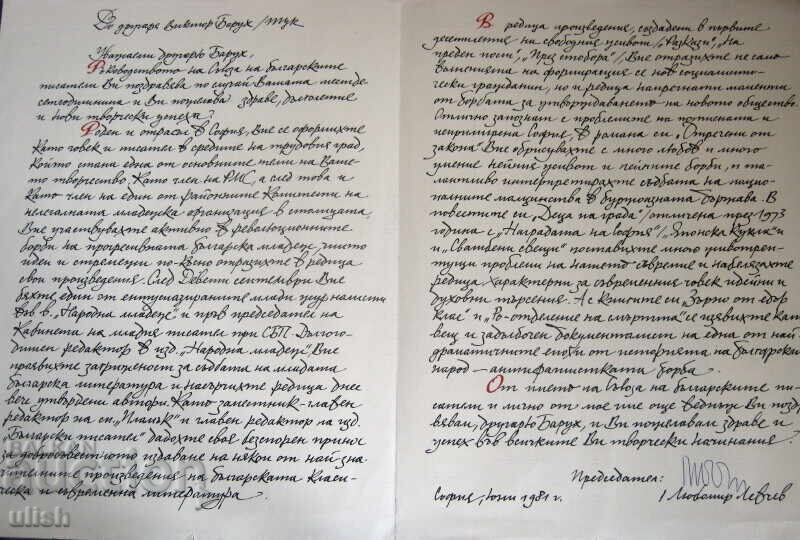 До другаря Виктор Барух /тук
Уважаеми другарю Барух,
Ръководството на Съюза на българските
писатели Ви поздравява по случай Вашата шестде-
сетгодишнина и Ви пожелава здраве, дълголетие
и нови творчески успехи!
Роден и отрасъл в София, Вие се оформихте
като човек и писател в средите на трудовия град,
който стана една от основните теми на Ваше-
то творчество. Като член на РМС, а след това и
като член на един от районните комитети на
нелегалната младежка организация в столицата,
Вие участвувахте активно в революционните
борби на прогресивната българска младеж, чиито
идеи и стремежи по-късно отразихте в редица
свои произведения. След Девети септември Вие
бяхте един от ентусиазираните млади журналисти
във в. „Народна младеж“ и пръв председател на
Кабинета на младия писател при СБП. Дълго-
дишен редактор в изд. „Народна младеж“, Вие
проявихте загриженост за съдбата на младата
българска литература и насърчихте редица днес
вече утвърдени автори. Като заместник-главен
редактор на сп. „Пламък“ и главен редактор на изд.
„Български писател“ дадохте своя безспорен принос
за добросъвестното издаване на някои от най-зна-
чителните произведения на българската класи-
ческа и съвременна литература.
ulish
В редица произведения, създадени в първите
десетилетия на свободния живот /„Разкази“, „На
преден пост“, „През стобора“/, Вие отразихте не само
вълненията на формиращия се нов социалисти-
чески гражданин, но и редица напрегнати моменти
от борбата за утвърждаването на новото общество.
Отлично запознат с проблемите на потисната и
непримирима София, в романа си „Отречени от
закона“ Вие обрисувахте с много любов и много
умение нейния живот и нейните борби, и та-
лантливо интерпретирахте съдбата на нацио-
налните малцинства в буржоазната държава. В
повестите си „Деца на града“ /отличена през 1973
година с „Наградата на София“/, „Японска кукла“ и
и „Сватбени свещи“ поставихте много животрел-
тущи проблеми на нашето съвремие и набелязахте
редица характерни за съвременния човек идейни и
духовни търсения. А с книгите си „Зърно от едър
клас“ и „Ро-отделение на смъртта“ се изявихте като
вещ и задълбочен документалист на една от най-
драматичните епохи от историята на българския
народ – антифашистката борба.
От името на Съюза на българските пи-
сатели и лично от мое име още веднъж Ви позд-
равявам, другарю Барух, и Ви пожелавам здраве и
успех във всичките Ви творчески начинания!
Председател:
София, юни 1981 г.
/ Любомир Левчев